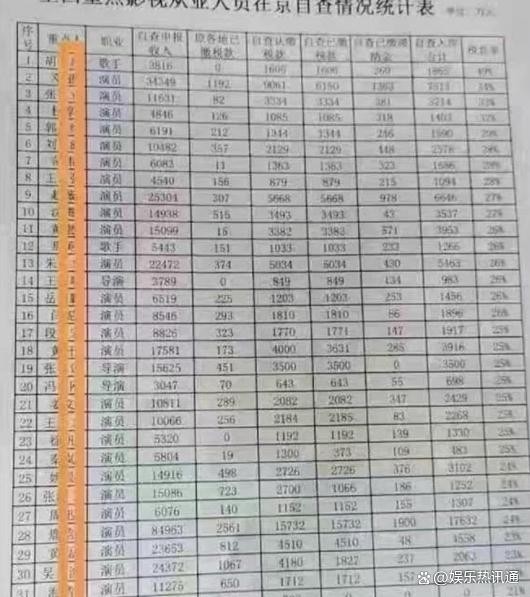 重点影视从业人员在京自查情况统计表 单位：万元
序号 职业 自查申报收入 原各地已缴税款 自查认缴税款 自查已缴税款 自查已缴滞纳金 自查入库合计 税负率
1 胡 歌手 3816 0 1606 1606 260
2 演员 34349 1192 9061 6150 1363 7513 34%
3 张 演员 11631 82 3334 3334 381 3714 33%
4 演员 4846 126 1085 1085 318 1403 32%
5 郭 演员 6191 212 1344 1344 246 1590 29%
6 刘 演员 10482 357 2129 2129 448 28%
7 演员 6083 11 1363 1363 323 1686 28%
8 王 演员 4540 156 879 879 215 1094 28%
9 演员 25304 307 5668 5668 978 6646 27%
10 演员 14938 515 3493 3493 43 3537 27%
11 黄 演员 15099 15 3382 3383 571 3953 26%
12 歌手 5443 151 1033 1033 233 1266 26%
13 朱 演员 22472 374 5034 5034 430 5463 26%
14 王 导演 3789 0 849 849 134 983 26%
15 岳 演员 6519 225 1203 1203 253 1456 26%
16 演员 8546 293 1810 1810 86 1896 26%
17 段 演员 8826 323 1770 1771 147 1917 25%
18 黄 演员 17581 173 4000 3631 285 3916 25%
19 张 导演 15625 451 3500 3500 0 3500 25%
20 冯 导演 3047 70 643 643 55 698 25%
21 姜 演员 10811 289 2082 2082 347 2429 25%
22 王 演员 10066 256 2184 2185 83 2268 25%
23 演员 5320 0 1192 1192 139 1330 25%
24 秦 演员 5804 19 1300 373 109 483 25%
25 姚 演员 14916 498 2726 2726 376 3102 24%
26 张 演员 15086 723 2700 1066 186 1252 24%
27 周 演员 6076 140 1152 1152 155 1307 24%
28 演员 84963 2561 15732 15732 1900 17632 24%
29 黄 演员 23653 812 4510 4510 48 4558 23%
30 吴 演员 24372 1067 4180 1827 237 2063 23%
31 演员 11275 650 1712 1712
@娱乐热讯通